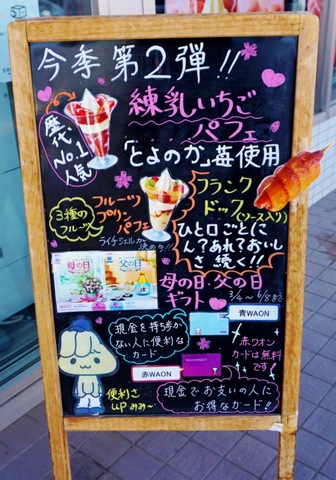 今季第2弾!!
歴代
No.1
人気
練乳いちご
パフェ
「とよのか」苺使用
3種の
フルーツ
フルーツ
プリン
パフェ
ライチジュレが
決め手!!
フランク
ドッグ(ソース入り)
ひと口ごとに
ん?あれ?おいし
さ続く!!
母の日
父の日
母の日・父の日
ギフト
3/4～6/8まで
現金を持ち歩か
ない人に便利な
カード
青WAON
赤ワオン
カードは無料
です
赤WAON
便利さ
UPみみ～
現金でお支払いの人に
お得なカード!!